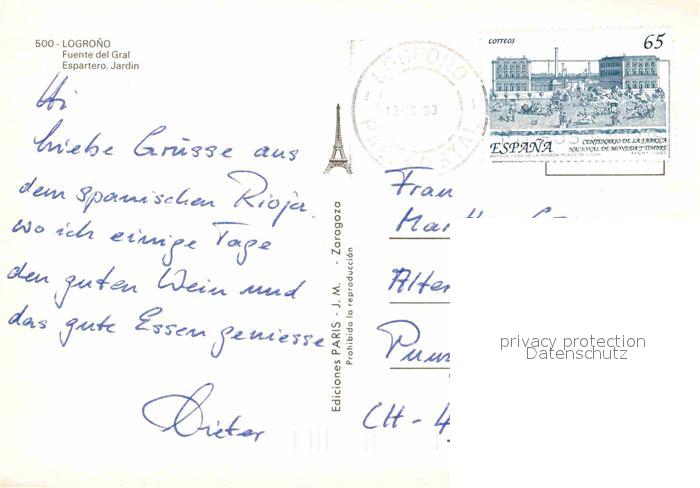 500 - LOGROÑO
Fuente del Gral
Espartero. Jardin
Hi
liebe Grüsse aus
dem spanischen Rioja.
wo ich einige Tage
den guten Wein und
das gute Essen geniesse
Dieter
Ediciones PARIS - J. M. - Zaragoza
Prohibida la reproducción
LOGROÑO
93
POSTAL
correos
65
ESPAÑA
CENTENARIO DE LA FABRICA
NACIONAL DE MONEDA Y TIMBRE
Frau
CH - 4
privacy protection
Datenschutz